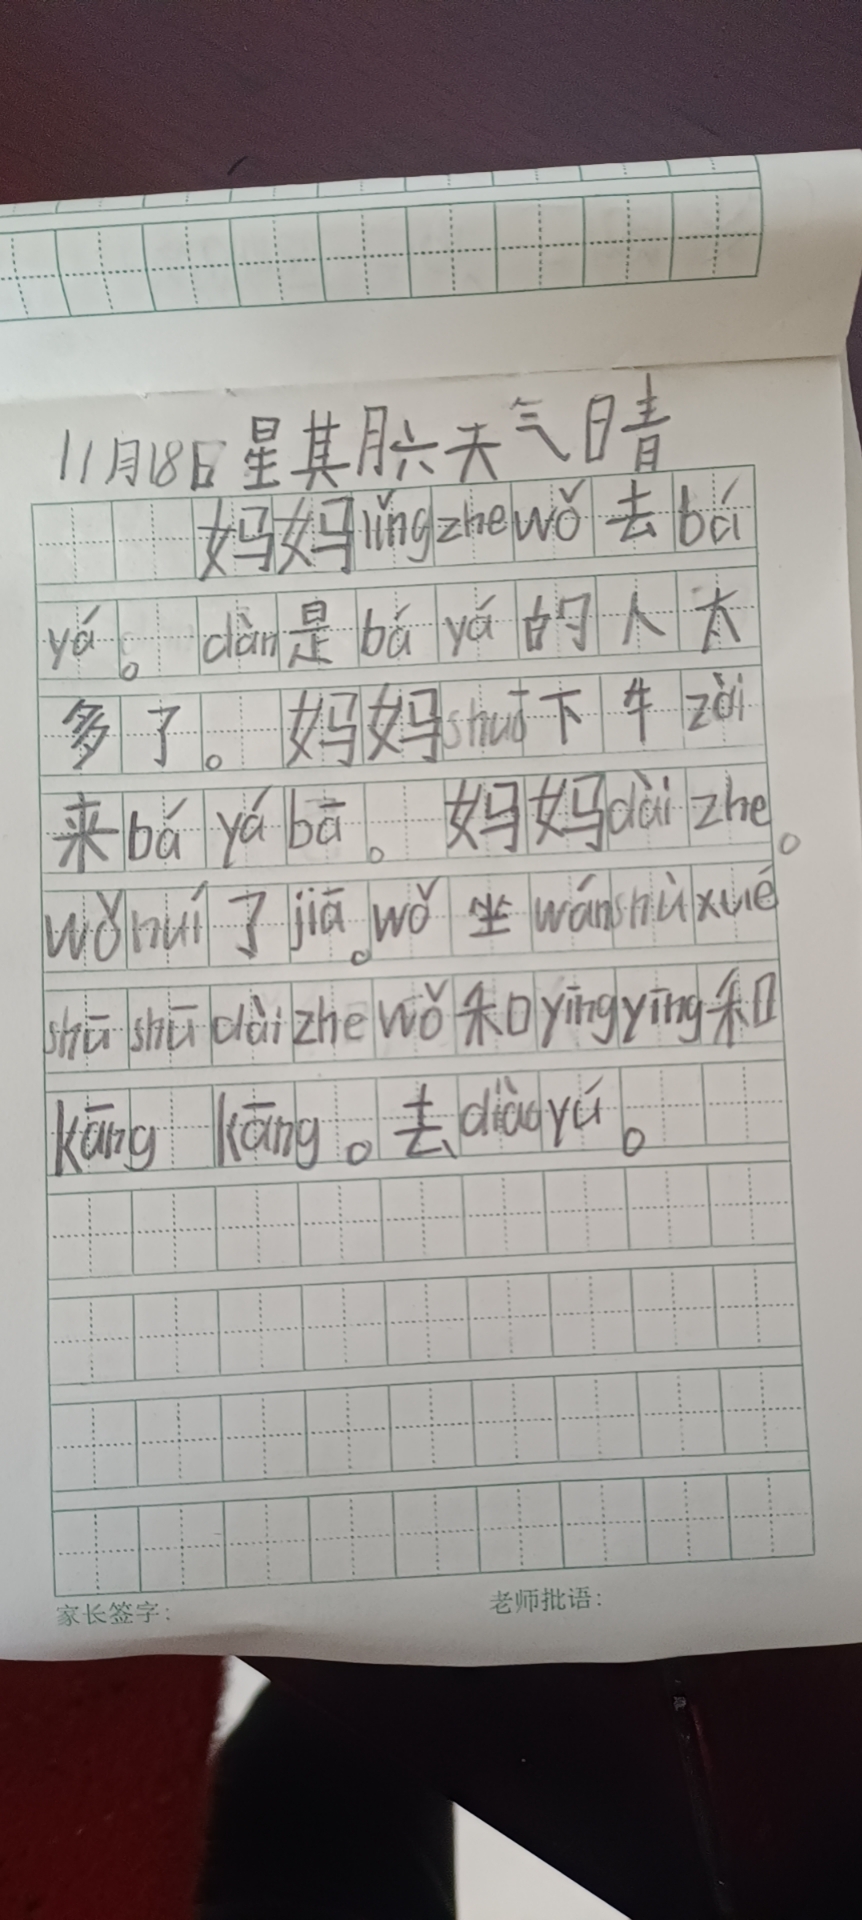 11月18日星期六天气晴
妈妈lǐngzhewǒ去bá
yá。dàn是bá yá的人太
多了。妈妈shuō下牛zài
来bá yá bā。妈妈dài zhe
wǒhuí了jiā。wǒ坐wánshùxué。
shū shū dài zhe wǒ和yīngyīng和
kāng kāng。去diàoyú。
家长签字: 老师批语: